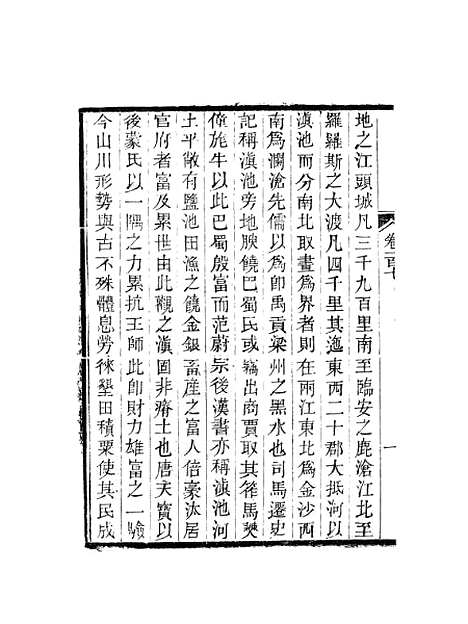 地之江頭城凡三千九百里南至臨安之鹿滄江北至
羅羅斯之大渡凡四千里其迤東西二十郡大抵河以
滇池而分南北取畫爲界者則在兩江東北爲金沙西
南爲瀾滄先儒以爲卽禹貢梁州之黑水也司馬遷史
記稱滇池旁地腴饒巴蜀民或竊出商賈取其筰馬僰
僮旄牛以此巴蜀殷富而范蔚宗後漢書亦稱滇池河
土平敞有鹽池田漁之饒金銀畜産之富人倍豪汰居
官府者富及累世由此觀之滇固非瘠土也唐天寶以
後蒙氏以一隅之力累抗王師此卽財力雄富之一驗
今山川形勢與古不殊體息勞徠墾田積粟使其民成
卷一百七
一